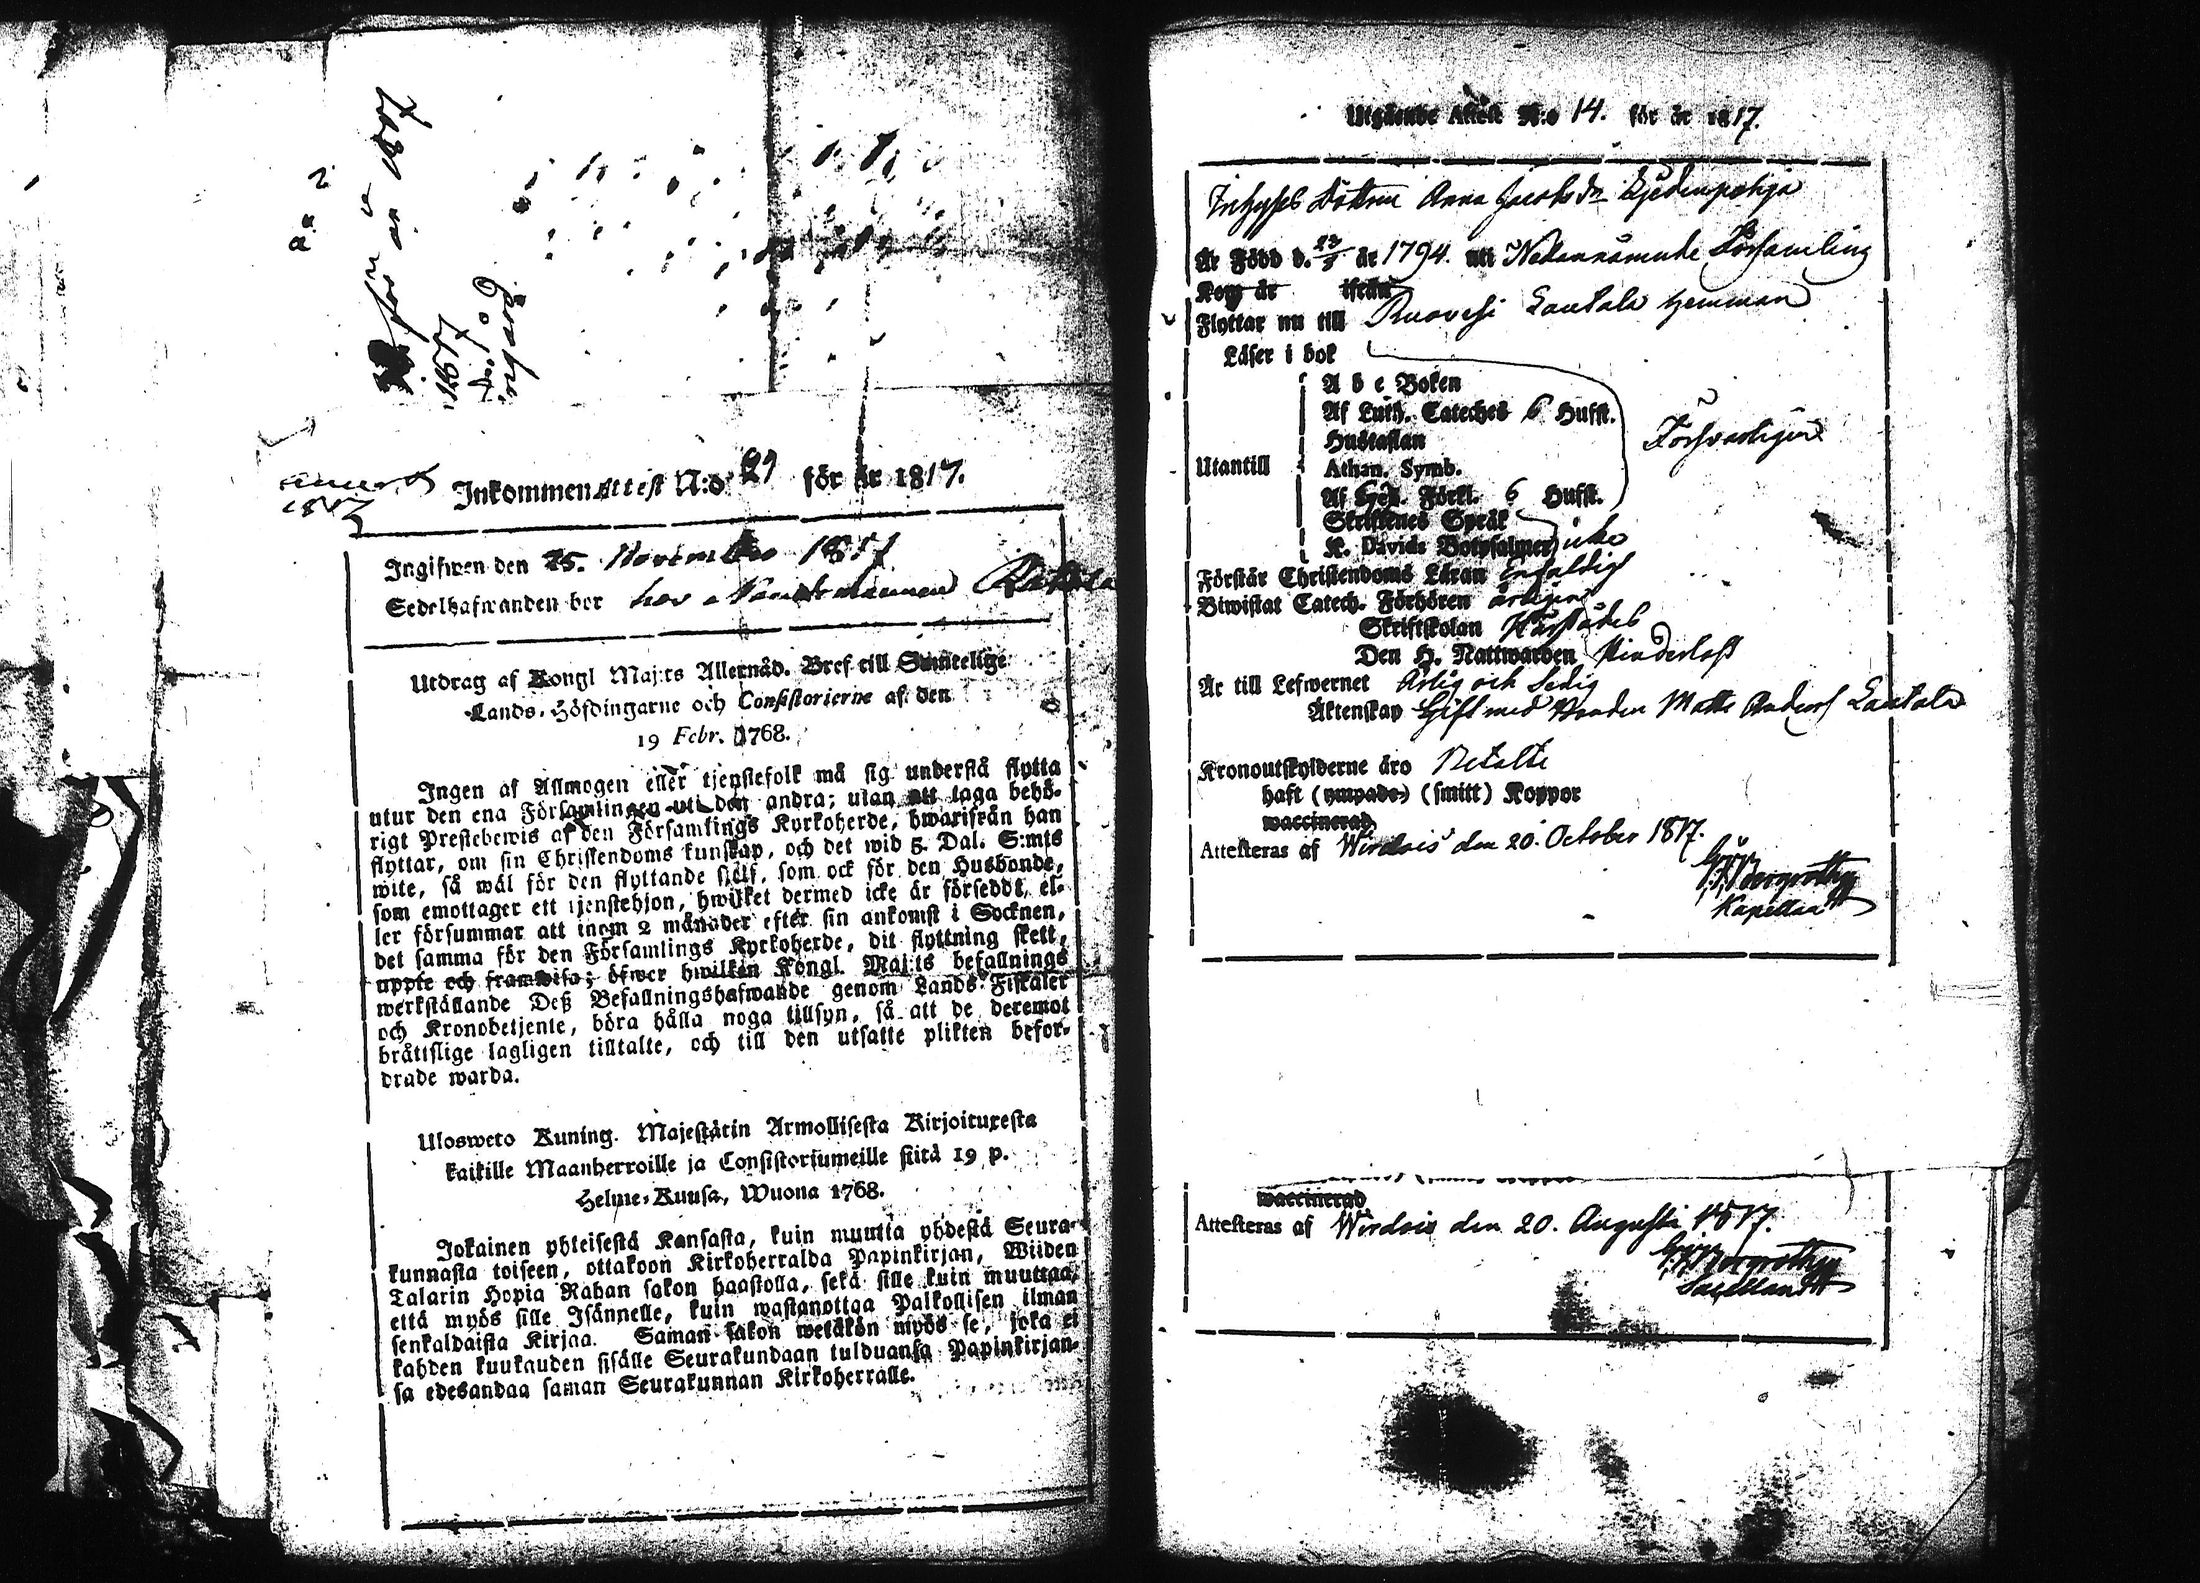 för år 1807
1887
No 7 o
Inkommen attest N:o 29 för år 1817.
Ingifwen den 25. November 1817
Sedelhafwanden bor hos Nämndemannen
Utdrag af Kongl Maj:ts Allernåd. Bref till Samtelige
Lands-Höfdingarne och Consistorierne af den
19 Febr. 1768.
Ingen af Allmogen eller tjenstefolk må sig understå flytta
utur den ena Församlingen uti den andra; utan att taga behö-
rigt Prestebewis af den Församlings Kyrkoherde, hwarifrån han
flyttar, om sin Christendoms kunskap, och det wid 5. Dal. S:mts
wite, så wäl för den flyttande sjelf, som ock för den Husbonde,
som emottager ett tjenstehjon, hwilket dermed icke är försedt, el-
ler försummar att inom 2 månader efter sin ankomst i Socknen,
det samma för den Församlings Kyrkoherde, dit flyttning skett,
uppte och framwisa; öfwer hwilken Kongl. Maj:ts befallnings
werkställande Deß Befallningshafwande genom Lands-Fiskaler
och Kronobetjente, böra hålla noga tillsyn, så att de deremot
bråttslige lagligen tilltalte, och till den utsatte plikten befor-
drade warda.
Ulosweto Kuning. Majestätin Armollisesta Kirjoituxesta
kaikille Maanherroille ja Consistoriumeille siitä 19 p.
Helme-Kuusa, Wuona 1768.
Jokainen yhteisestä Kansasta, kuin muutta yhdestä Seura-
kunnasta toiseen, ottakoon Kirkoherralda Papinkirjan, Wiiden
Talarin Hopia Rahan sakon haastolla, sekä sille kuin muuttaa,
että myös sille Isännelle, kuin wastanottaa Palkollisen ilman
senkaldaista Kirjaa. Saman sakon wetäkön myös se, joka ei
kahden kuukauden sisälle Seurakundaan tulduansa Papinkirjan-
sa edesandaa saman Seurakunnan Kirkoherralle.
Utgående Attest N:o 14. för år 1817.
Inhyses Dottren Anna Jacobsdr
Är Född d. 23/3 år 1794. uti Nedannämnde Församling
Kom år ifrån
Flyttar nu till Ruovesi Lautala hemman
Läser i bok
A b c Boken
Af Luth. Cateches 6 Hufst.
Hustaflan
Utantill Athan. Symb. Försvarligen
Af Sveb. Förkl. 6 Hufst.
Skriftenes Språk
K. Davids Botpsalmer icke
Förstår Christendoms Läran Enfaldigt
Biwistat Catech. Förhören årligen
Skriftskolan Härstädes
Den H. Nattwarden Hinderlöst
Är till Lefwernet Ärlig och Sedig
Äktenskap Gift med Bonden Matts Anderss Lautala
Kronoutskylderne äro Betalte
haft (ympade) (smitt) Koppor
waccinerad
Attesteras af Wirdois den 20. October 1817.
Kapellan
waccinerad
Attesteras af Wirdois den 20. Augusti 1817.